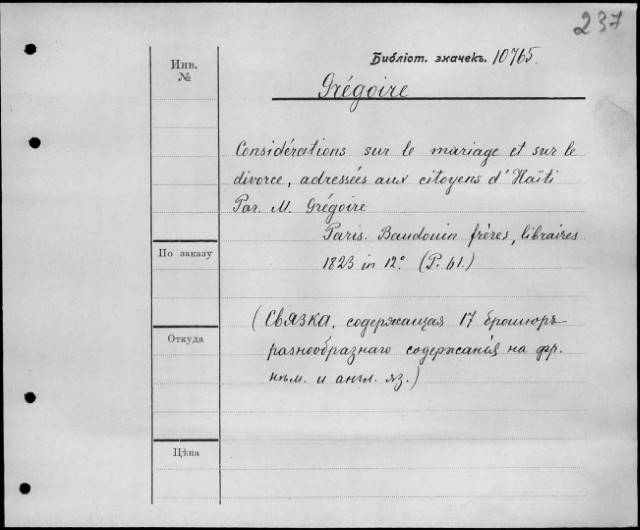 237
Инв.
№
Библіот. значекъ. 10765.
Grégoire
Considérations sur le mariage et sur le
divorce, adressées aux citoyens d'Haïti
Par. M. Grégoire
Paris. Baudouin frères, libraires
1823 in 12° (P. 61.)
По заказу
(Связка, содержащая 17 брошюръ
разнообразнаго содержанія на фр.
нѣм. и англ. яз.)
Откуда
Цѣна